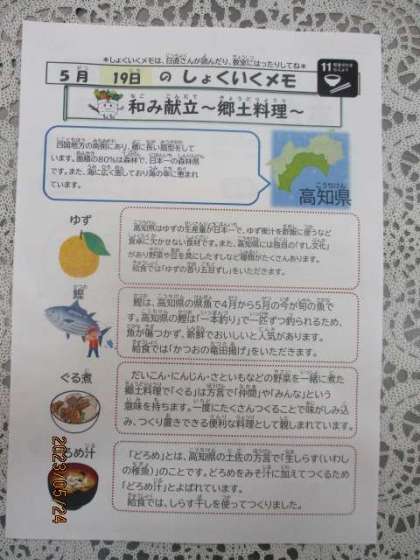 ＊しょくいくメモは、日直さんが読んだり、教室にはったりしてね＊
5月 19日 の しょくいくメモ
11
和み献立～郷土料理～
四国地方の南側にあり、横に長い扇型をして
います。面積の80%は森林で、日本一の森林県
です。また、海に広く面しており海の幸に恵まれ
ています。
高知県
ゆず
高知県はゆずの生産量が日本一で、ゆず果汁を酢飯に使うなど
食卓に欠かせない食材です。また、高知県には独自の「すし文化」
があり野菜や豆を具にしたすしなど種類がたくさんあります。
給食では「ゆずの香り五目ずし」をいただきます。
鰹
鰹は、高知県の県魚で4月から5月の今が旬の魚で
す。高知県の鰹は「一本釣り」で一匹ずつ釣られるため、
魚が傷つかず、新鮮でおいしいと人気があります。
給食では「かつおの竜田揚げ」をいただきます。
ぐる煮
だいこん・にんじん・さといもなどの野菜を一緒に煮た
郷土料理で「ぐる」は方言で「仲間」や「みんな」という
意味を持ちます。一度にたくさんつくることで味がしみこ
み、つくり置きできる便利な料理として親しまれています。
どろめ汁
「どろめ」とは、高知県の土佐の方言で「生しらす(いわし
の稚魚)」のことです。どろめをみそ汁に加えてつくるため
「どろめ汁」とよばれています。
給食では、しらす干しを使ってつくりました。
2023/05/24